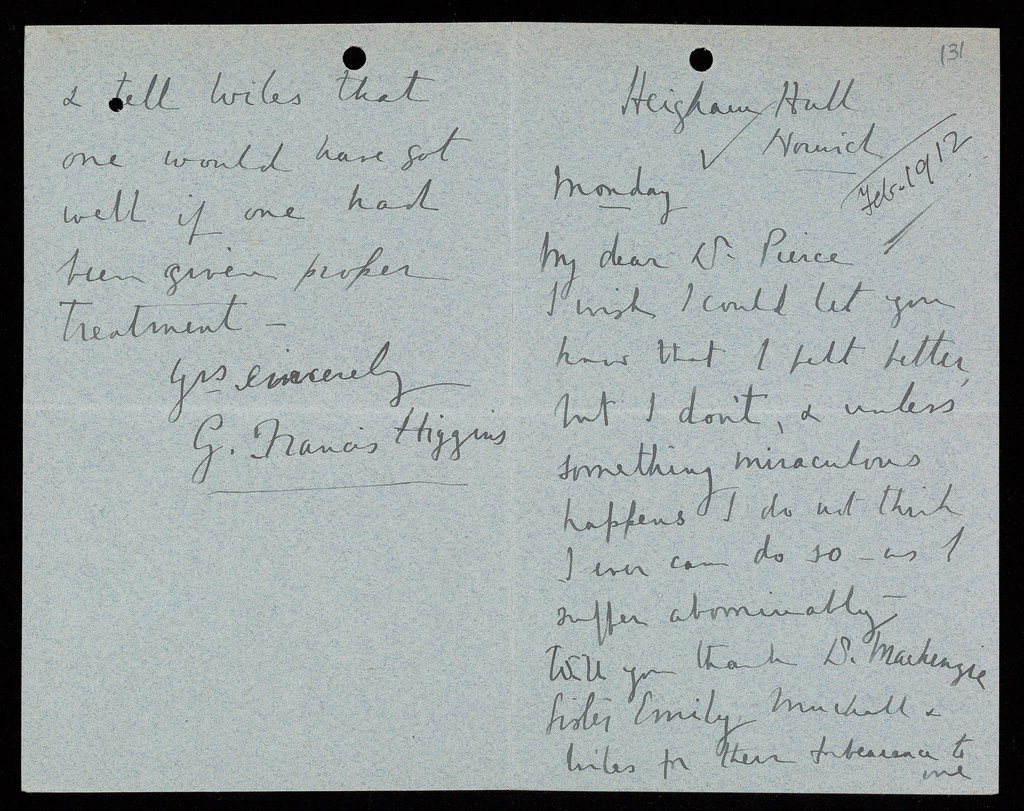 131
Heigham Hall
Norwich
Feb. 1912
Monday
My dear Dr. Pierce
I wish I could let you
know that I felt better,
but I don't, & unless
something miraculous
happens I do not think
I ever can do so – as I
suffer abominably –
Will you thank Dr. Mackenzie
Sister Emily, &
Wiles for their forbearance to
me
& tell Wiles that
one would have got
well if one had
been given proper
treatment –
Yrs sincerely
G. Francis Higgins